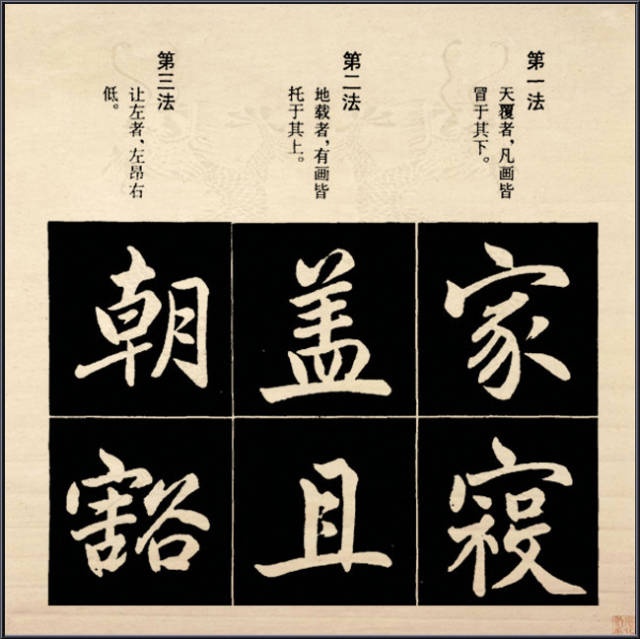 第一法
天覆者，凡画皆
冒于其下。
第二法
地载者，有画皆
托于其上。
第三法
让左者、左昂右
低。
家
寝
盖
且
朝
豁